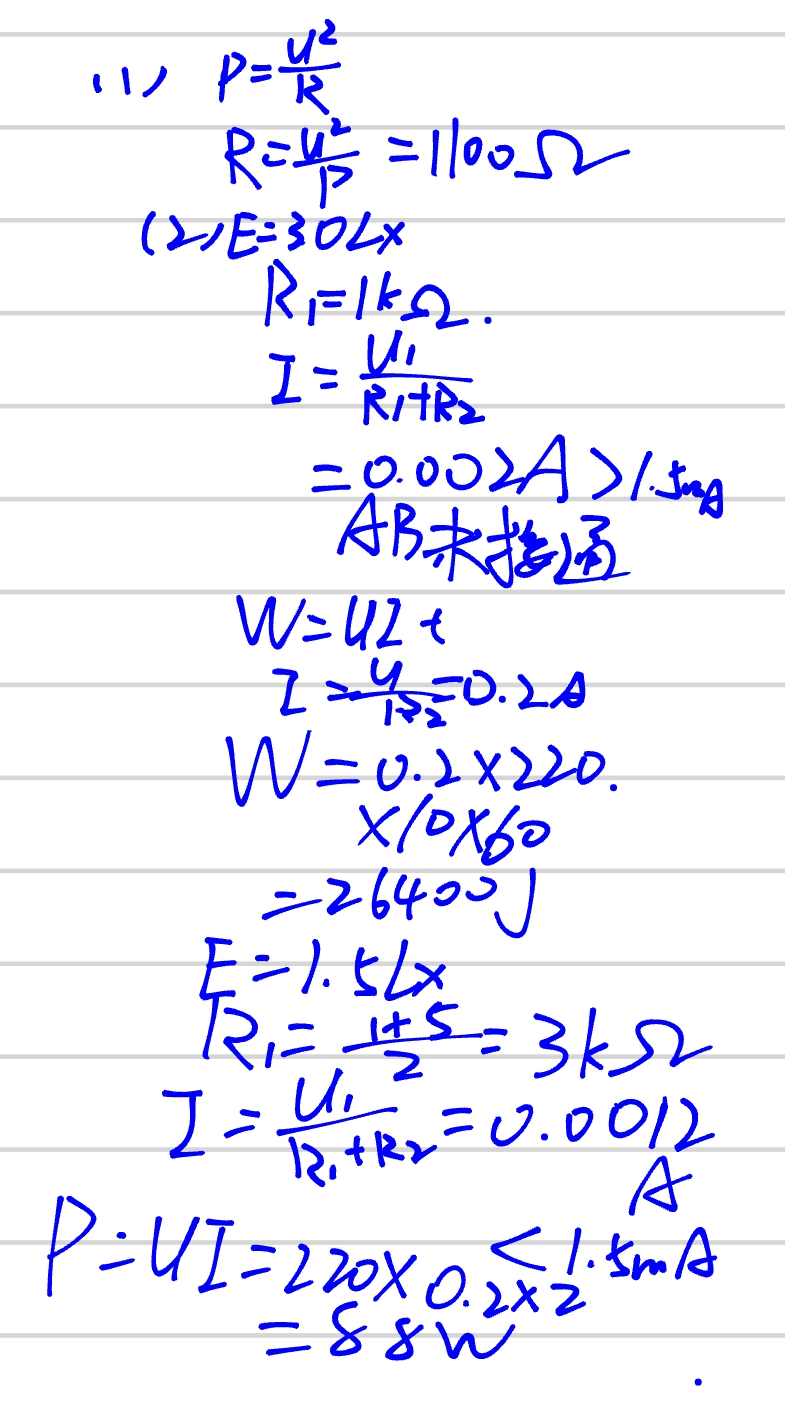 (1) P=U²/R
R=U²/P=1100Ω
(2)E=30Lx
R₁=1kΩ.
I=U₁/(R₁+R₂)
=0.002A>1.5mA
AB未接通
W=UIt
I=U/R₂=0.2A
W=0.2×220.
×10×60
=26400J
E=1.5Lx
R₁=(1+5)/2=3kΩ
I=U₁/(R₁+R₂)=0.0012
A
<1.5mA
P=UI=220×0.2×2
=88W